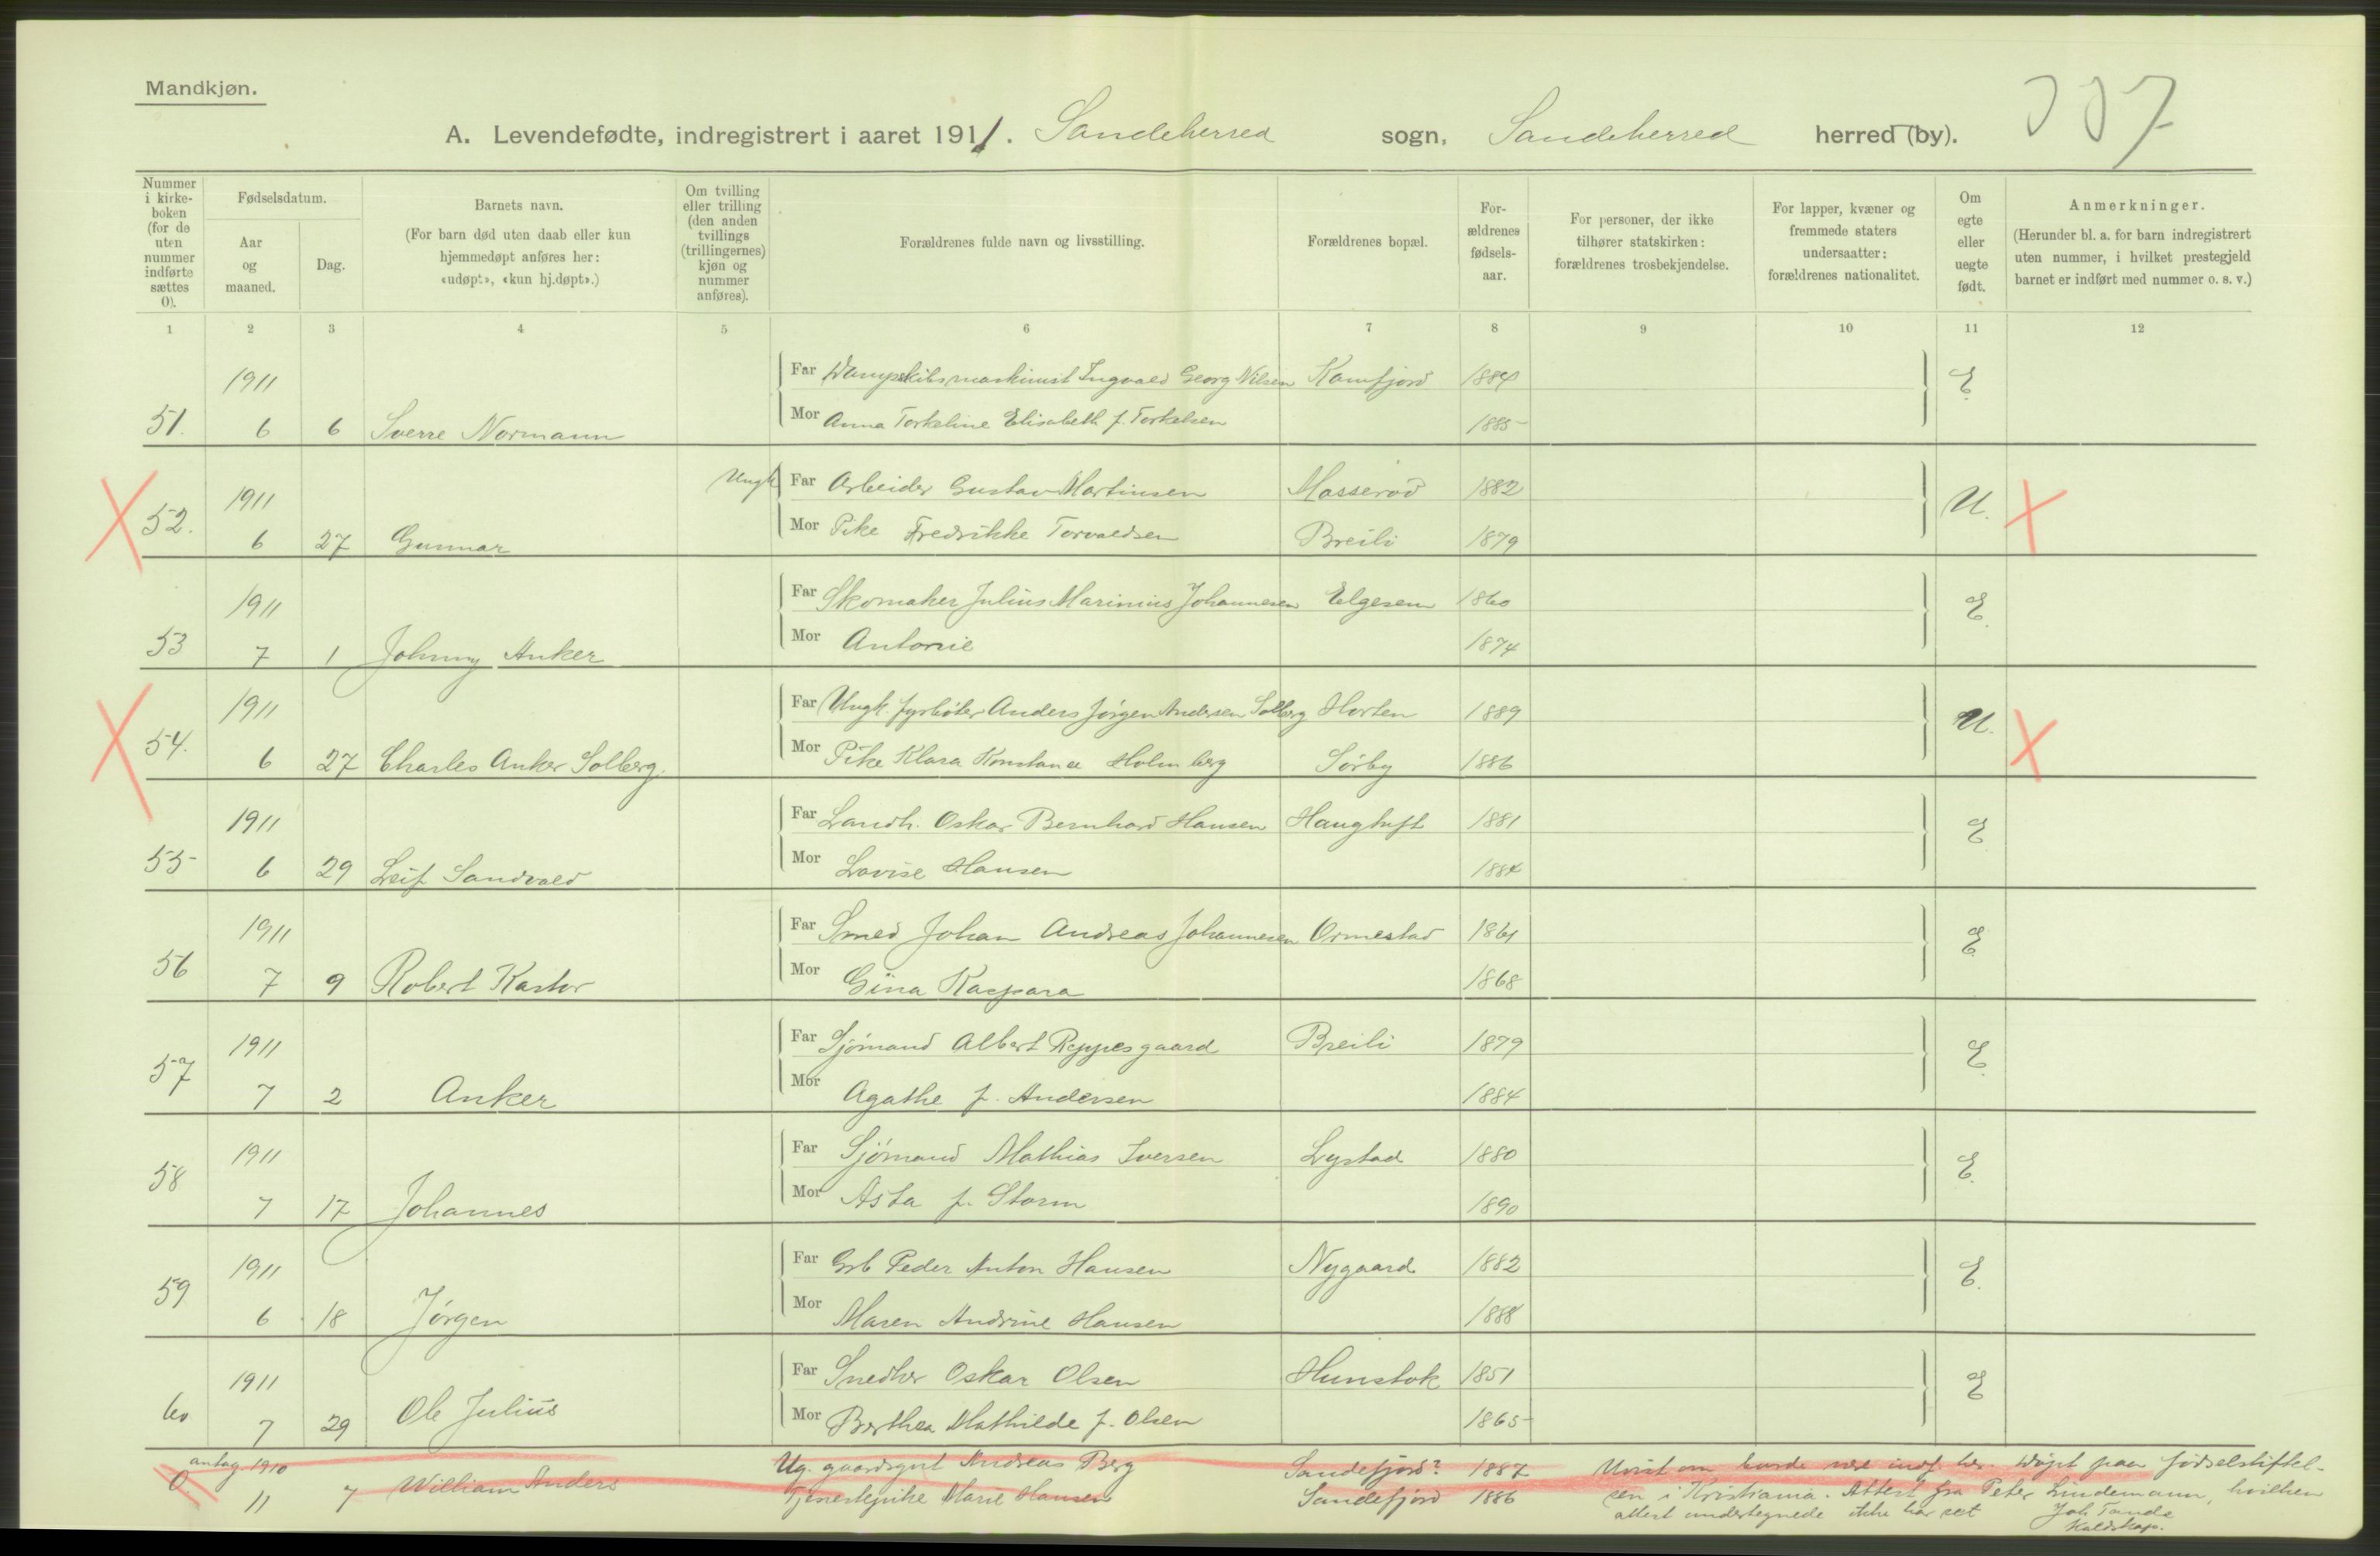 Mandkjøn.
A. Levendefødte, indregistrert i aaret 1911. Sandeherred sogn, Sandeherred herred (by). 337
Nummer i kirke-boken (for de uten nummer indførte sættes 0).
Fødselsdatum.
Aar og maaned.
Dag.
Barnets navn.
(For barn død uten daab eller kun hjemmedøpt anføres her: «udøpt», «kun hj.døpt».)
Om tvilling eller trilling (den anden tvillings (trillingernes) kjøn og nummer anføres).
Forældrenes fulde navn og livsstilling.
Forældrenes bopæl.
For-ældrenes fødsels-aar.
For personer, der ikke tilhører statskirken: forældrenes trosbekjendelse.
For lapper, kvæner og fremmede staters undersaatter: forældrenes nationalitet.
Om egte eller uegte født.
Anmerkninger.
(Herunder bl. a. for barn indregistrert uten nummer, i hvilket prestegjeld barnet er indført med nummer o. s. v.)
1 2 3 4 5 6 7 8 9 10 11 12
1911 Far Dampskibsmaskinist Ingvald Georg Nilsen Kamfjord 1884 E.
51. 6 6 Sverre Normann Mor Anna Torkeline Elisabeth f. Torkelsen 1885
1911 Ungk Far Arbeider Gustav Martinsen Mosserød 1882 U.
52. 6 27 Gunnar Mor Pike Fredrikke Torvaldsen Breili 1879
1911 Far Skomaker Julius Marinius Johannesen Elgesem 1860 E.
53 7 1 Johnny Anker Mor Antonie 1874
1911 Far Ungk. fyrbøter Anders Jørgen Andersen Solberg Horten 1889 U.
54. 6 27 Charles Anker Solberg. Mor Pike Klara Konstance Holmberg Sørby 1886
1911 Far Landh. Oskar Bernhard Hansen Haugtuft 1881 E
55 6 29 Leif Sandvald Mor Lovise Hansen 1884
1911 Far Smed Johan Andreas Johannesen Ormestad 1861 E
56 7 9 Robert Kastor Mor Gina Kaspara 1868
1911 Far Sjømand Albert Reppesgaard Breili 1879 E.
57 7 2 Anker Mor Agathe f. Andersen 1884
1911 Far Sjømand Mathias Iversen Lystad 1880 E.
58 7 17 Johannes Mor Asta f. Storm 1890
1911 Far Grb Peder Anton Hansen Nygaard 1882 E.
59 6 18 Jørgen Mor Maren Andrine Hansen 1888
1911 Far Snedker Oskar Olsen Hunstok 1851 E
60 7 29 Ole Julius Mor Berthea Mathilde f. Olsen 1865
antag. 1910 Ug. gaardsgut Andreas Berg Sandefjord? 1887 Uvist om burde være indf. her. Døpt paa fødselsstiftel-
0. 11 7 William Anders Tjenestepike Marie Hansen Sandefjord 1886 sen i Kristiania. Attest fra Peter Lindemann, hvilken
attest undertegnede ikke har set Joh Tande
Kaldskap.